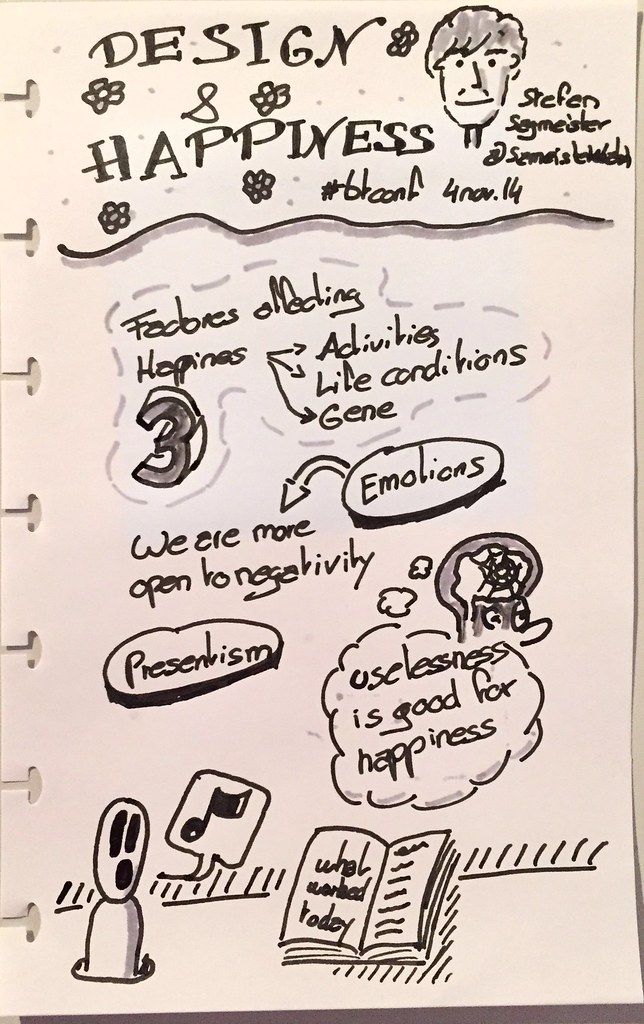 DESIGN
&
HAPPINESS
Stefen
Segmeister
#btconf 4nov.14
Factores affecting
Happines
Activities
Life conditions
Gene
3
Emotions
We are more
open to negativity
Presentism
Uselessness
is good for
happiness
what
worked
today